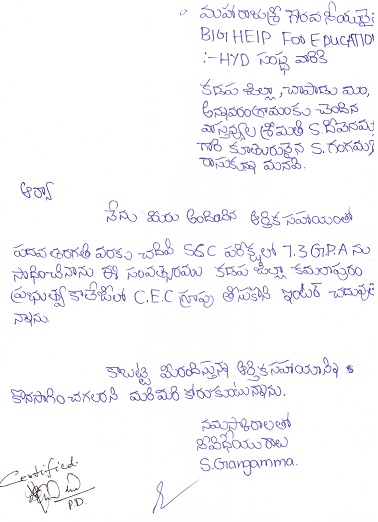 మహారాజశ్రీ గౌరవనీయులైన
BIG HELP FOR EDUCATION
:- HYD సంస్థ వారికి
కడప జిల్లా, చాపాడు మం,
అన్నవరం గ్రామంకు చెందిన
వాస్తవ్యుల శ్రీమతి S. దేవెనమ్మ
గారి కూతురునైన S. గంగమ్మ
రాసుకున్న మనవి.
ఆర్యా
నేను మీరు అందించిన ఆర్థిక సహాయంతో
పదవ తరగతి వరకు చదివి SSC పరీక్షల్లో 7.3 G.P.A ను
సాధించినాను ఈ సంవత్సరము కడప జిల్లా కమలాపురం
ప్రభుత్వ కాలేజిలో C.E.C గ్రూపు తీసుకొని ఇంటర్ చదువుతు
న్నాను.
కాబట్టి మీరందిస్తున్న ఆర్థిక సహాయాన్ని
కొనసాగించగలరని మరీమరీ కోరుకుంటున్నాను.
నమస్కారాలతో
విధేయురాలు
S. Gangamma.
Certified
P.D.